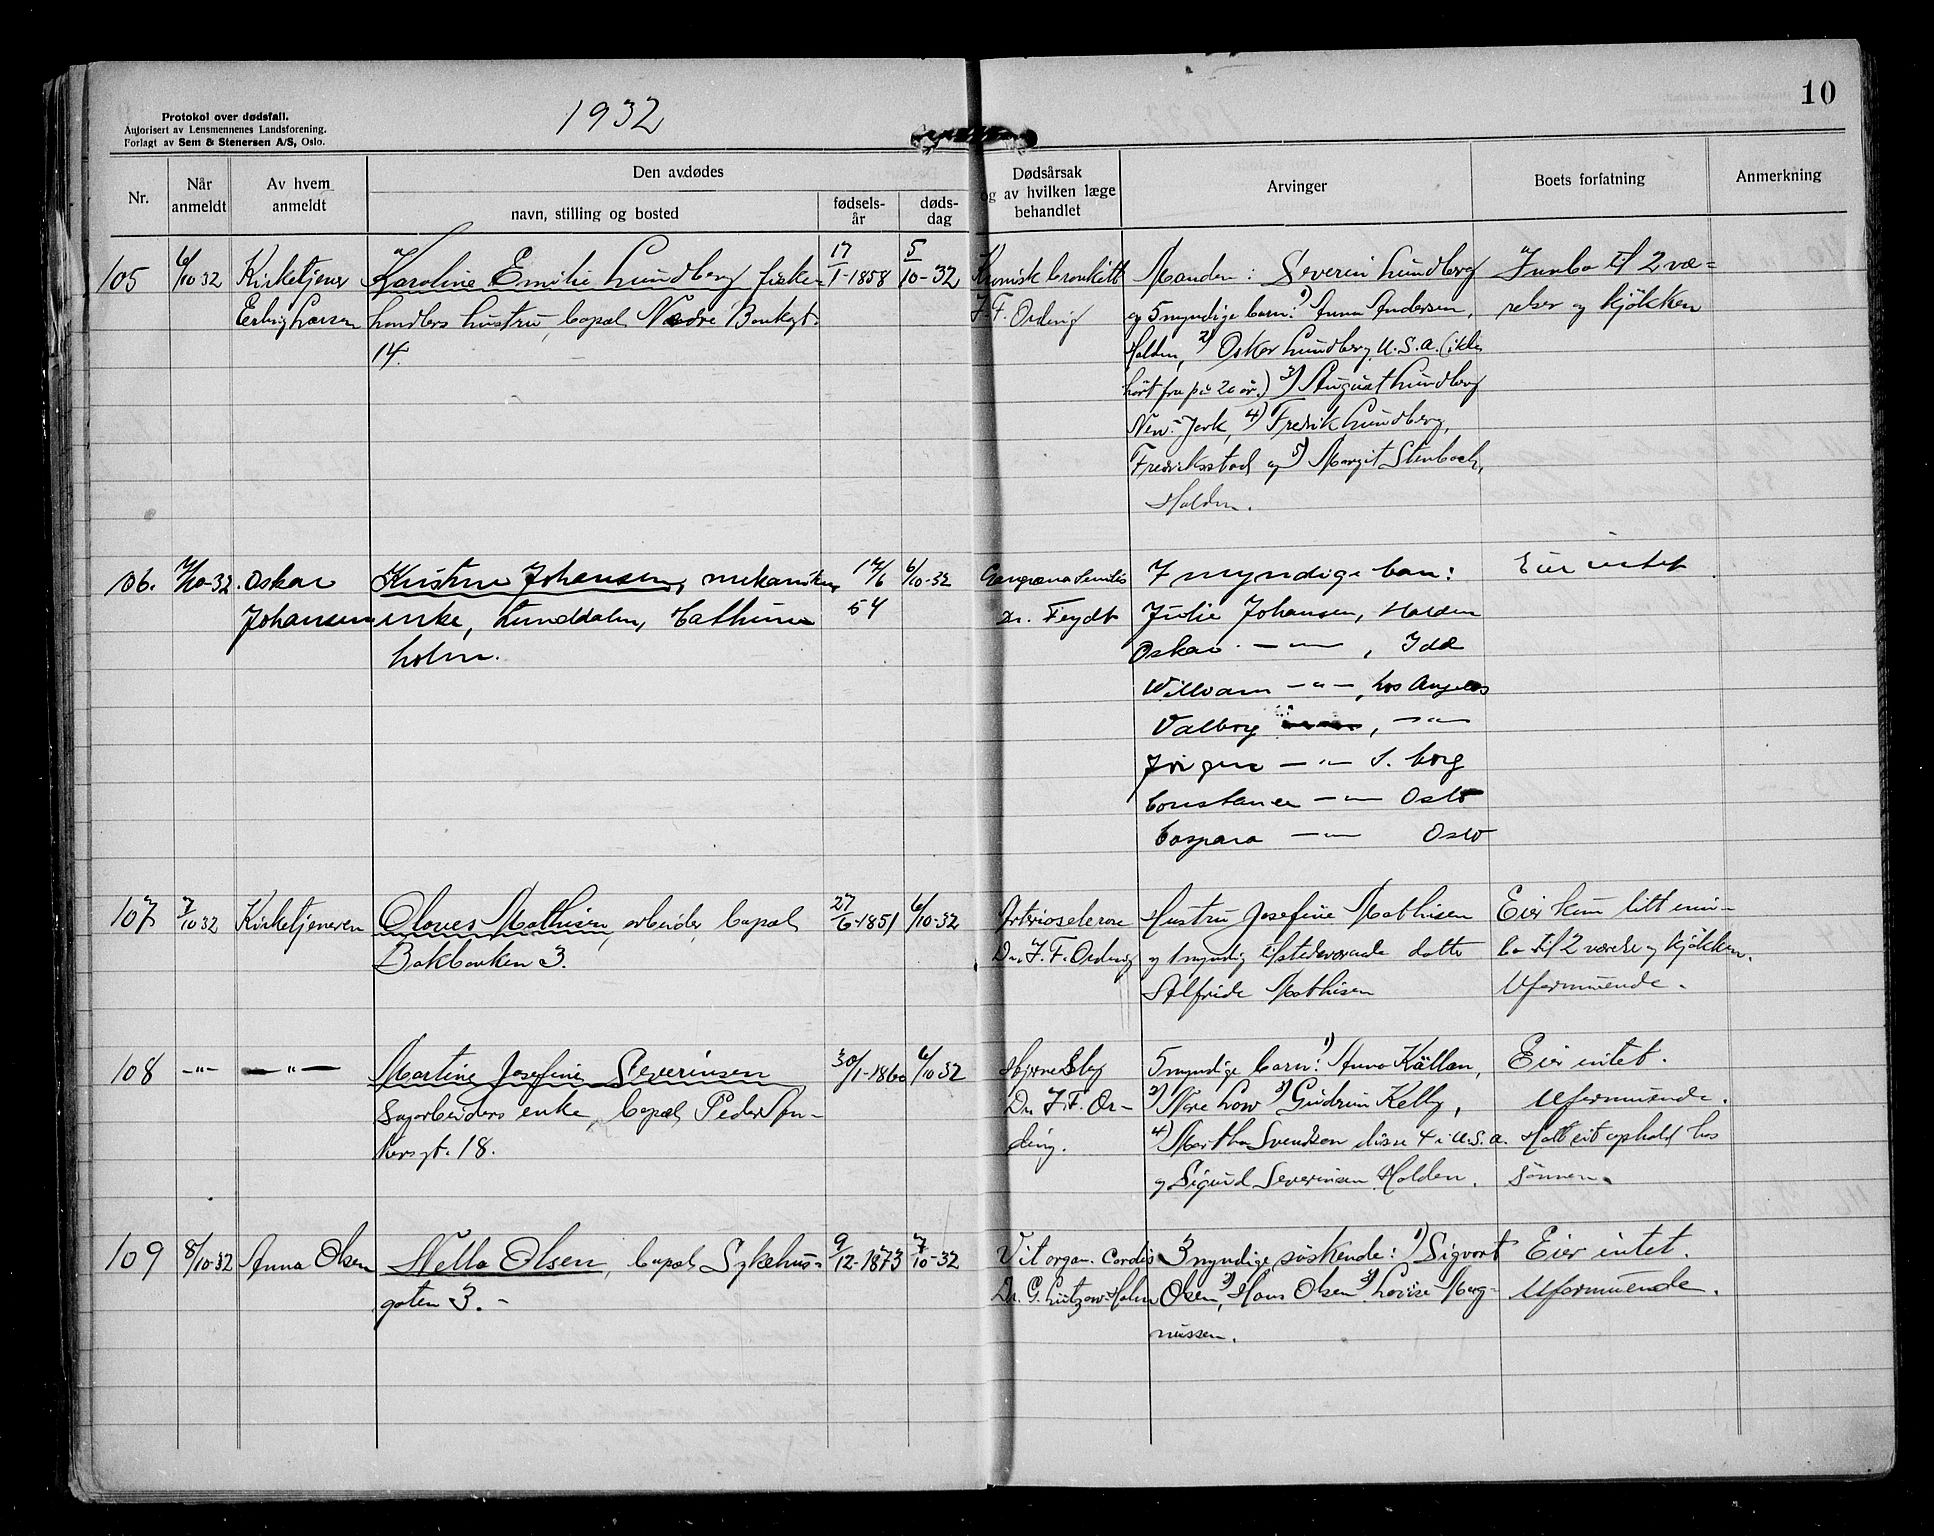 10
1932
Protokol over dødsfall.
Autorisert av Lensmennenes Landsforening.
Forlagt av Sem & Stenersen A/S, Oslo.
Nr.
Når anmeldt
Av hvem anmeldt
Den avdødes
navn, stilling og bosted
fødselsår
dødsdag
Dødsårsak og av hvilken læge behandlet
Arvinger
Boets forfatning
Anmerkning
105
6/10 32
Kirketjener
Erling Larsen
Karoline Emilie Lundberg fiske-
handlers hustru, Nedre Bankgt.
14.
17/1-1858
5/10-32
Kronisk bronkitt
J. F. Ording
Manden: Severin Lundberg
og 5 myndige barn: 1) Anna Andersen,
Halden, 2) Oskar Lundberg U.S.A. (ikke
hört fra på 20 år.) 3) August Lundberg
New-York, 4) Fredrik Lundberg,
Fredriksstad og 5) Margit Stenbock,
Halden.
Innbo til 2 væ-
relser og kjökken
106.
7/10-32
Oskar
Johansen
Kristine Johansen, mekaniker
enke, Lunddalen,
holm.
17/6
54
6/10-32
Gangræna Senilis
Dr. Feydt
7 myndige barn:
Julie Johansen, Halden
Oskar -"-, Idd
William -"-, Los Angeles
Valborg, -"-
Jörgen -"- S. borg
Constance -"- Oslo
Caspara -"- Oslo
Eier intet
107
7/10 32
Kirketjeneren
Olaves Mathisen, arbeider,
Bakbanken 3.
27/6-1851
6/10-32
Arteriosclerose
Dr. J. F. Ording
Hustru Josefine Mathisen
og 1 myndig datter
Alfride Mathisen
Eier kun litt inn-
bo til 2 værelse og kjökken.
Uformuende.
108
-"-
-"-
Martine Josefine Severinsen
Sagarbeiders enke, Peder An-
kersgt. 18.
30/1-1860
6/10-32
Hjerneslag
Dr. J. F. Or-
ding.
5 myndige barn: 1) Anna Källan,
2) Low 3) Gudrun Kelly,
4) Martha Svendsen disse 4 i U.S.A.
og Sigurd Severinsen Halden.
Eier intet.
Uformuende.
Hatt sit ophold hos
sönnen.
109
8/10-32
Anna Olsen
Nella Olsen, Sykehus-
gaten 3.-
9/12-1873
7/10-32
Vit organ. Cordis
Dr. G. Lützow-Holm
3 myndige söskende: 1) Sigvart
Olsen, 2) Hans Olsen 3) Lovise Mag-
nussen.
Eier intet.
Uformuende.